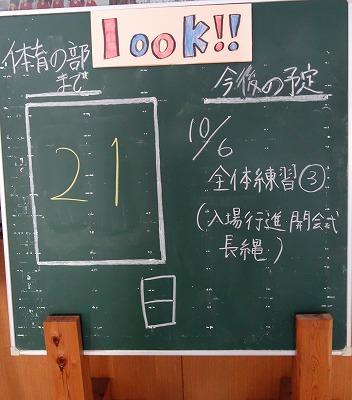 look!!
体育の部
まで
21
日
今後の予定
10/6
全体練習③
(入場行進 開会式
長縄)